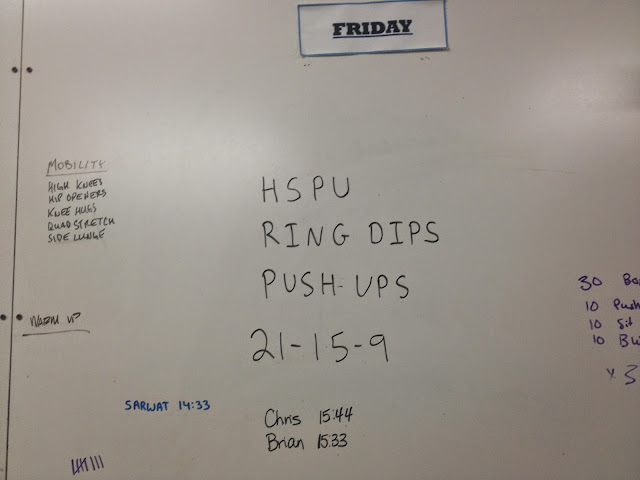 FRIDAY
MOBILITY
HIGH KNEES
HIP OPENERS
KNEE HUGS
QUAD STRETCH
SIDE LUNGE
WARM UP
HSPU
RING DIPS
PUSH-UPS
21-15-9
SARWAT 14:33
Chris 15:44
Brian 15:33
30
10 Push
10 Sit
10
x 3